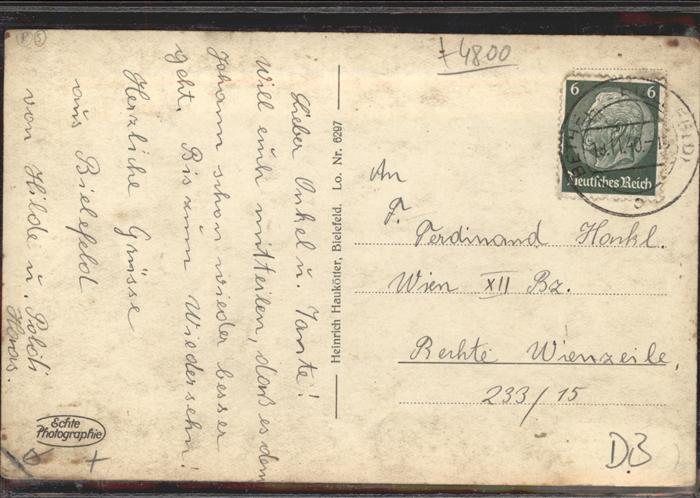 Lieber Onkel u. Tante!
Will euch mitteilen, daß es dem
Johann schon wieder besser
geht. Bis zum Wiedersehn!
Herzliche Grüsse
aus Bielefeld
von Hilde u. Poldi
Echte
Photographie
Heinrich Haukötter, Bielefeld. Lo. Nr. 6297
+4800
6 6
Deutsches Reich
An
F.
Ferdinand
Wien XII Bz.
Rechte Wienzeile,
233/15
DB